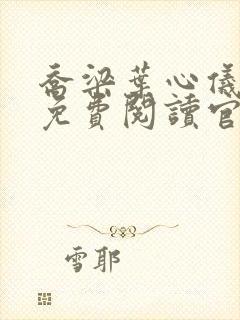 喬梁葉心儀
免費閱讀官
雪耶